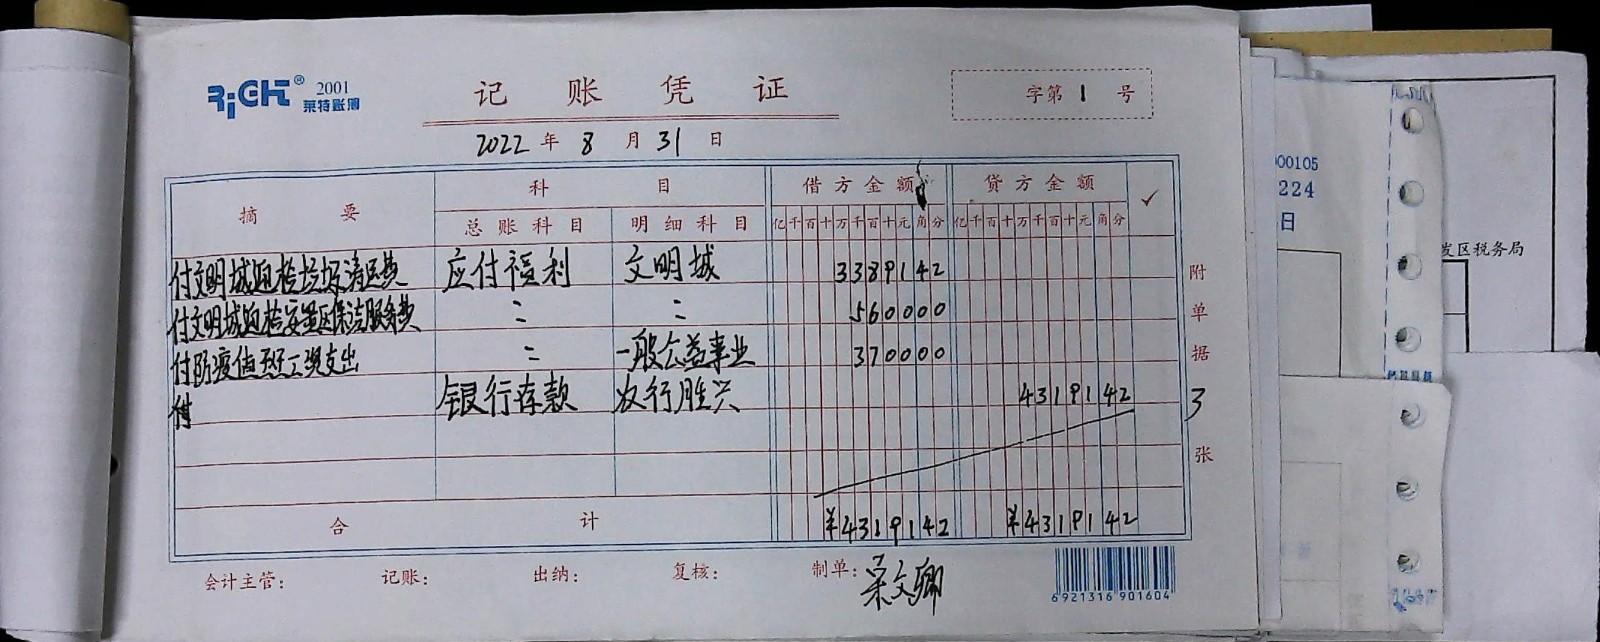 RiGHT® 2001
莱特账簿
记账凭证
字第 1 号
2022 年 8 月 31 日
摘要 科目 借方金额 贷方金额 ✓
总账科目 明细科目 亿千百十万千百十元角分 亿千百十万千百十元角分
付文明城迎检垃圾清运费 应付福利 文明城 3389142
付文明城迎检安置区保洁服务费 〃 〃 560000
付防疫值班误工支出 〃 一般公益事业 370000
付 银行存款 农行胜兴 4319142
合计 ¥4319142 ¥4319142
附单据 3 张
会计主管: 记账: 出纳: 复核: 制单: 文卿
6921316901604
00105
224
日
发区税务局